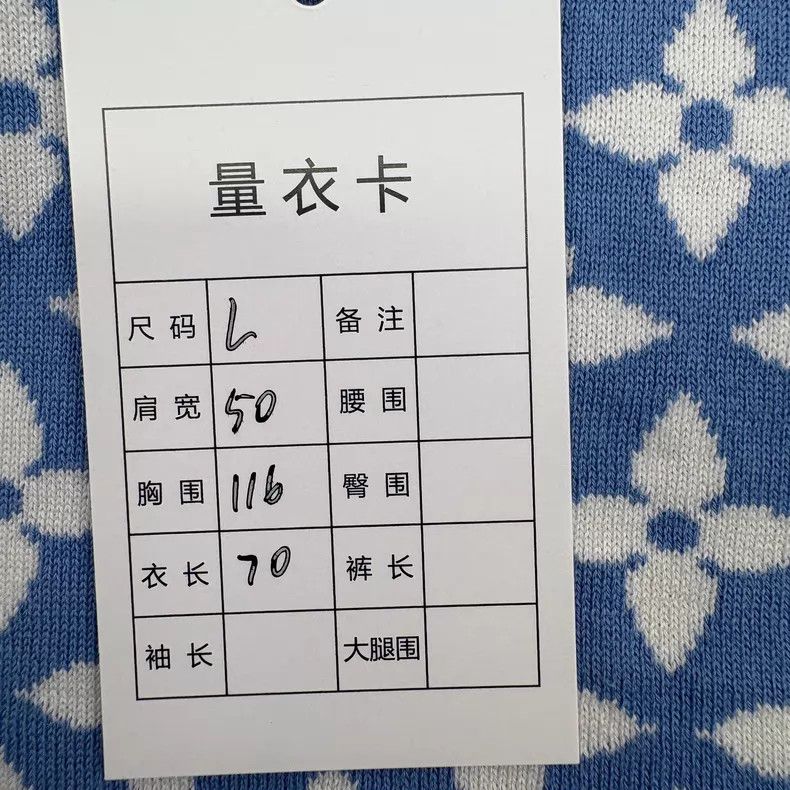 量衣卡
尺码 L 备注
肩宽 50 腰围
胸围 116 臀围
衣长 70 裤长
袖长 大腿围